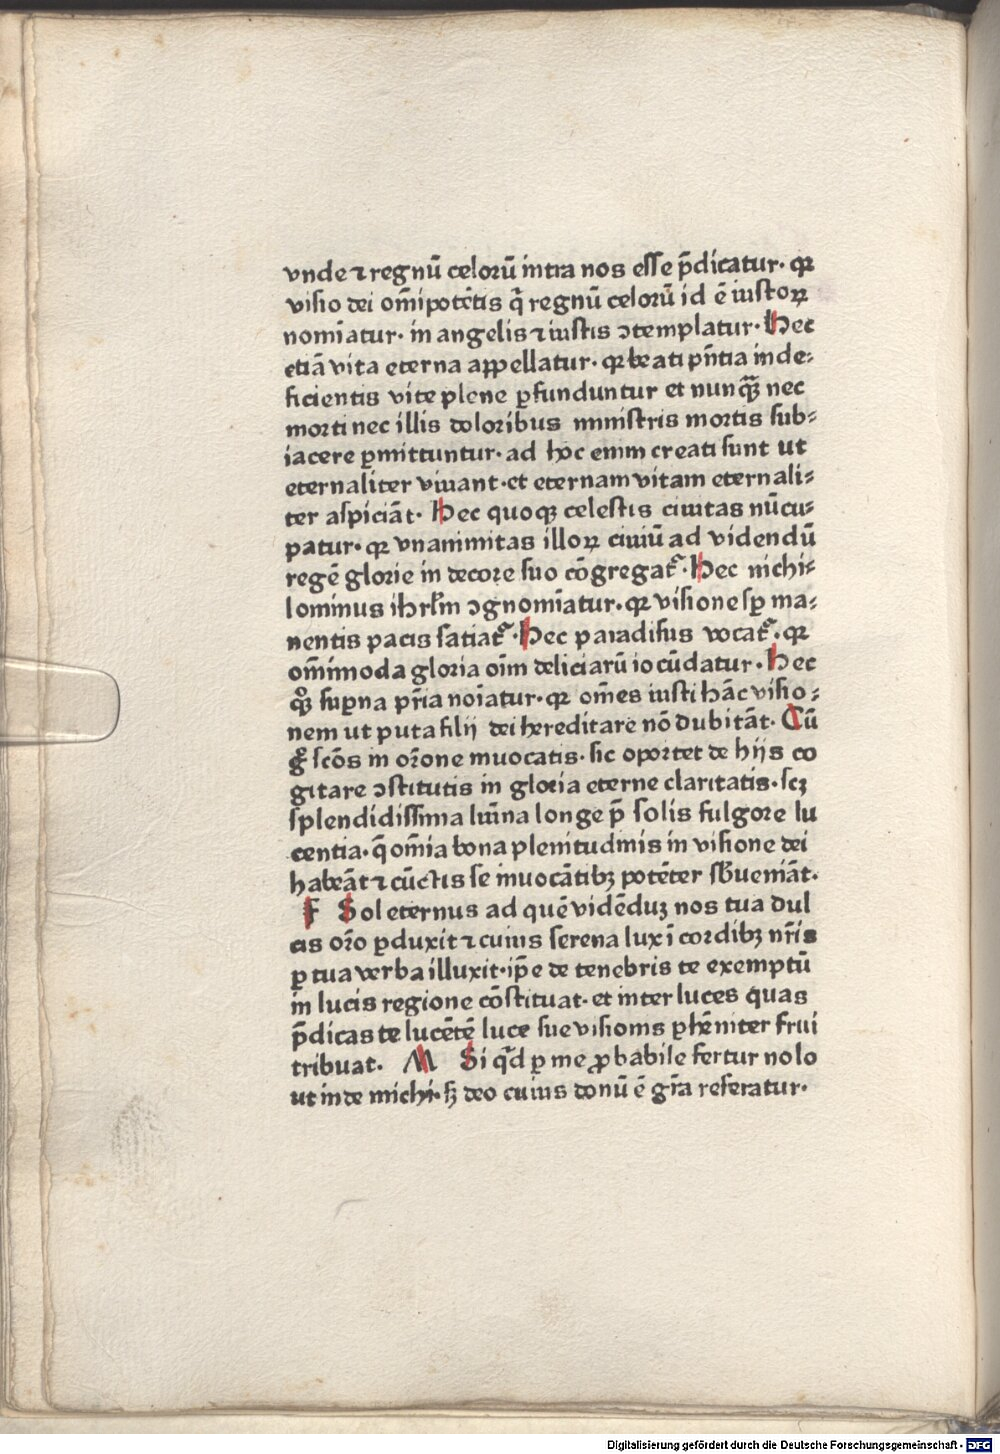 vnde ⁊ regnū celoꝛū intra nos esse p̄dicatur· qꝛ
visio dei om̄ipotētis q̄ regnū celoꝛū id ē iustoꝝ
nomīatur· in angelis ⁊ iustis ↄtemplatur· Hec
etiā vita eterna appellatur· qꝛ beati pn̄tia inde⸗
ficientis vite plene ꝑfunduntur et nunqᷓꝫ nec
morti nec illis doloribus ministris mortis sub⸗
iacere ꝑmittuntur· ad hoc enim creati sunt ut
eternaliter viuant· et eternam vitam eternali⸗
ter aspiciāt· Hec quoqꝫ celestis ciuitas nūcu⸗
patur· qꝛ vnanimitas illoꝝ ciuiū ad videndū
regē glorie in decore suo cōgregat᷑· Hec nichi⸗
lominus ihrl̄m ↄgnomīatur· qꝛ visione sꝑ ma⸗
nentis pacis satiat᷑· Hec paradisus vocat᷑· qꝛ
om̄imoda gloria oīm deliciarū iocūdatur· Hec
qꝫ suꝑna pr̄ia noīatur· qꝛ om̄es iusti hāc visio⸗
nem ut puta filij dei hereditare nō dubitāt· Cū
gͦ scōs in oꝛōne inuocatis· sic oportet de hijs co
gitare ↄstitutis in gloria eterne claritatis· scꝫ
splendidissima lumīna longe p̄ solis fulgoꝛe lu
centia· q̄ om̄ia bona plenitudinis in visione dei
habeāt ⁊ cūctis se inuocātibꝫ potēter sb̄ueniāt·
F Sol eternus ad quē vidēduꝫ nos tua dul
cis oꝛō ꝑduxit ⁊ cuius serena lux ī coꝛdibꝫ nr̄is
ꝑ tua verba illuxit· ip̄e de tenebris te exemptū
in lucis regione cōstituat· et inter luces quas
p̄dicas te lucētē luce sue visionis ꝑhēniter frui
tribuat· M Si qͥd ꝑ me ꝓbabile fertur nolo
ut inde michi· sꝫ deo cuius donū ē gr̄a referatur·
Digitalisierung gefördert durch die Deutsche Forschungsgemeinschaft - DFG